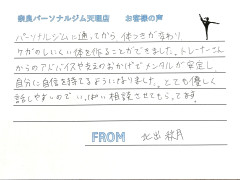 奈良パーソナルジム天理店 お客様の声
パーソナルジムに通ってから 体つきが変わり
ケガのしにくい体を作ることができました。トレーナーさん
からのアドバイスや支えのおかげでメンタルが安定し、
自分に自信を持てるようになりました。とても優しく
話しやすいので、いっぱい相談させてもらってます。
FROM 北出